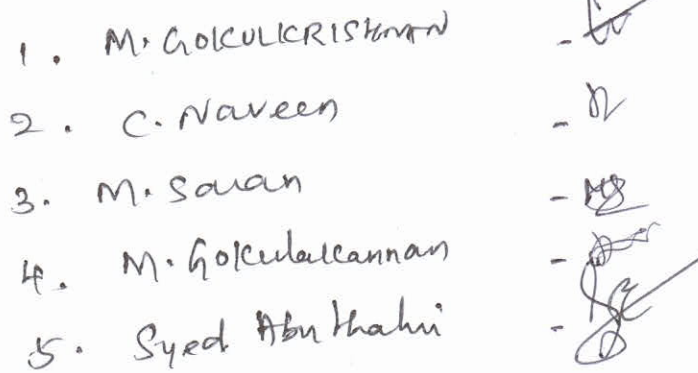 1. M. GOKULKRISHNAN -
2. C. Naveen -
3. M. Saran -
4. M. Gokulakannan -
5. Syed Abuthahir -